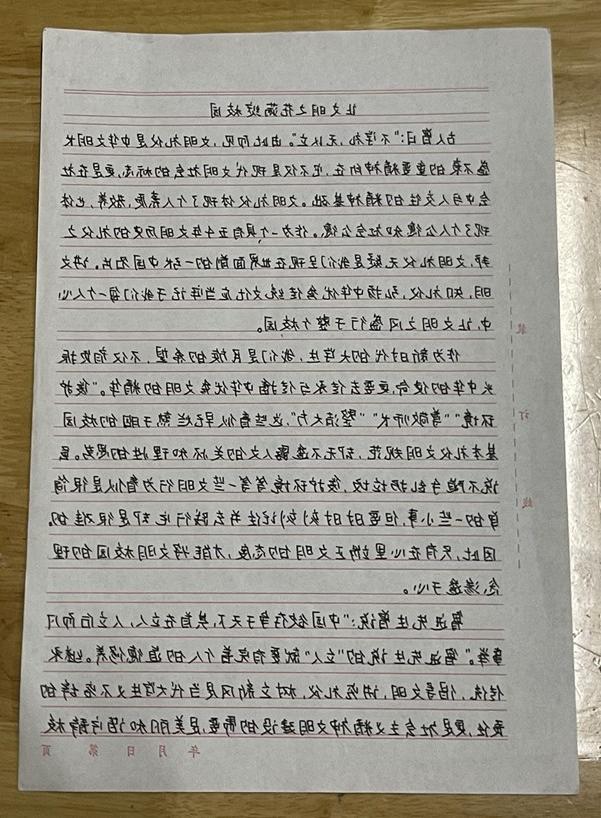 让文明之花满绽校园
古人曾曰:"不学礼,无以立"。由此可见,文明礼仪是中华文明长
盛不衰的重要精神内在,它不仅是现代文明社会的标志,更是在社
会中与人交往的精神基础。文明礼仪体现了个人素质,教养,也体
现了个人公德和社会公德。作为一个具有五千年文明历史的礼仪之
邦,文明礼仪无疑是我们呈现在世界面前的一张中国名片。讲文
明,知礼仪,弘扬中华优秀传统文化应当谨记于我们每一个人心
中,让文明之风盛行于整个校园。
作为新时代的大学生,我们是民族的希望,不仅肩负振
兴中华的使命,更要去传承与传播中华优秀文明的精华。"爱护
环境""尊敬师长""整洁大方",这些看似早已烂熟于胸的校园
基本礼仪文明规范,却无不透露人文的关怀和理性的思辨。虽
说不随手乱扔垃圾,爱护环境等等一些文明行为看似是很简
单的一些小事,但要时时刻刻记住并去践行它却是很难的。
因此,只有在心里端正文明的态度,才能将文明校园的理
念满透于心。
鲁迅先生曾说:"中国欲存争于天下,其首在立人,人立后而凡
事举。"鲁迅先生说的"立人"就要有完善个人的道德修养。继承
传统,倡导文明,讲究礼仪,树立新风是当代大学生义不容辞的
责任,更是社会主义精神文明建设的需要,是美丽和谐宁静校
年 月 日 第 页
装
订
线